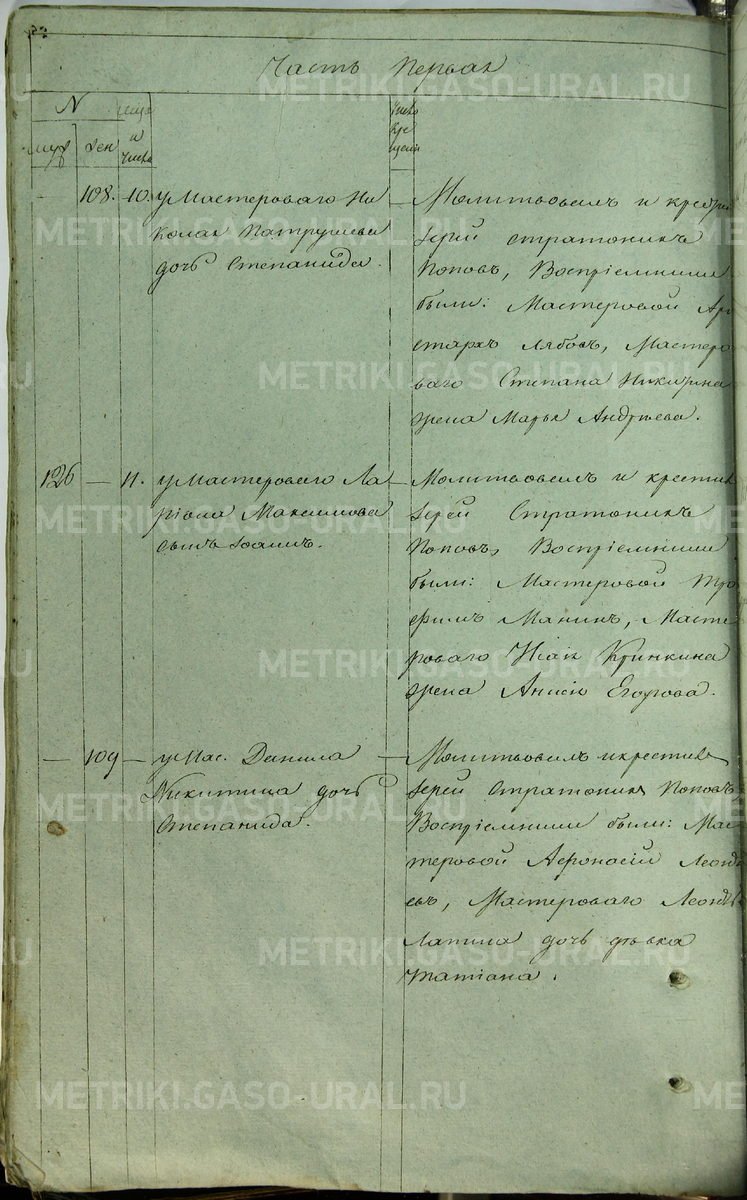 Часть Первая
N
муж
жен
и
Число
Число
Кре
щенія
108.
10.
уМастероваго Ни
колая Патрушева
дочь Степанида.
Молитвовалъ и крести
Іерей Стратоникъ
Поповъ, Воспріемники
были: Мастеровой Ари
стархъ Лябовъ, Мастеро
ваго Степана Никитина
жена Марья Андреева.
126
11.
уМастероваго Ла
ріона Максимова
сынъ Іоаннъ.
Молитвовалъ и крестил
Іерей Стратоникъ
Поповъ, Воспріемники
были: Мастеровой Тро
фимъ Манинъ, Масте
роваго Исак
жена Анисія Егорова.
109
уМас. Данила
Никитина дочь
Степанида.
Молитвовалъ икрестил
Іерей Стратоник Поповъ
Воспріемники были: Мас
теровой Афонасіи Леонть
евъ, Мастероваго Леонть
Лапина дочь дѣвка
Татіана.
METRIKI.GASO-URAL.RU